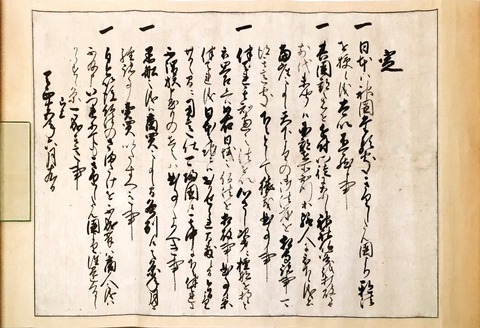 定
一 日本ハ神国たる処きりしたん国より邪法
を授候儀太以不可然候事
一 其国郡之者を近付門徒になし神社仏閣を打破之
由前代未聞候国郡在所知行等給人に被下候儀者
当座之事候天下よりの御法度を相守諸事
可得其意処下々として猥義曲事事
一 伴天連其知恵之法を以心さし次第に檀那を持候と
被思召候へハ如右日域之仏法を相破事曲事候条
伴天連儀日本之地ニハおかせられ間敷候間今日より
廿日之間ニ用意仕可帰国候其中に下々伴天連
に不謂族申懸もの在之ハ曲事たるへき事
一 黒船之儀ハ商買之事候間各別候之条年月を
経諸事売買いたすへき事
一 自今以後仏法のさまたけを不成輩ハ商人之儀ハ
不及申いつれにてもきりしたん国より往還くるし
からす候条可成其意事
已上
天正十五年六月十九日